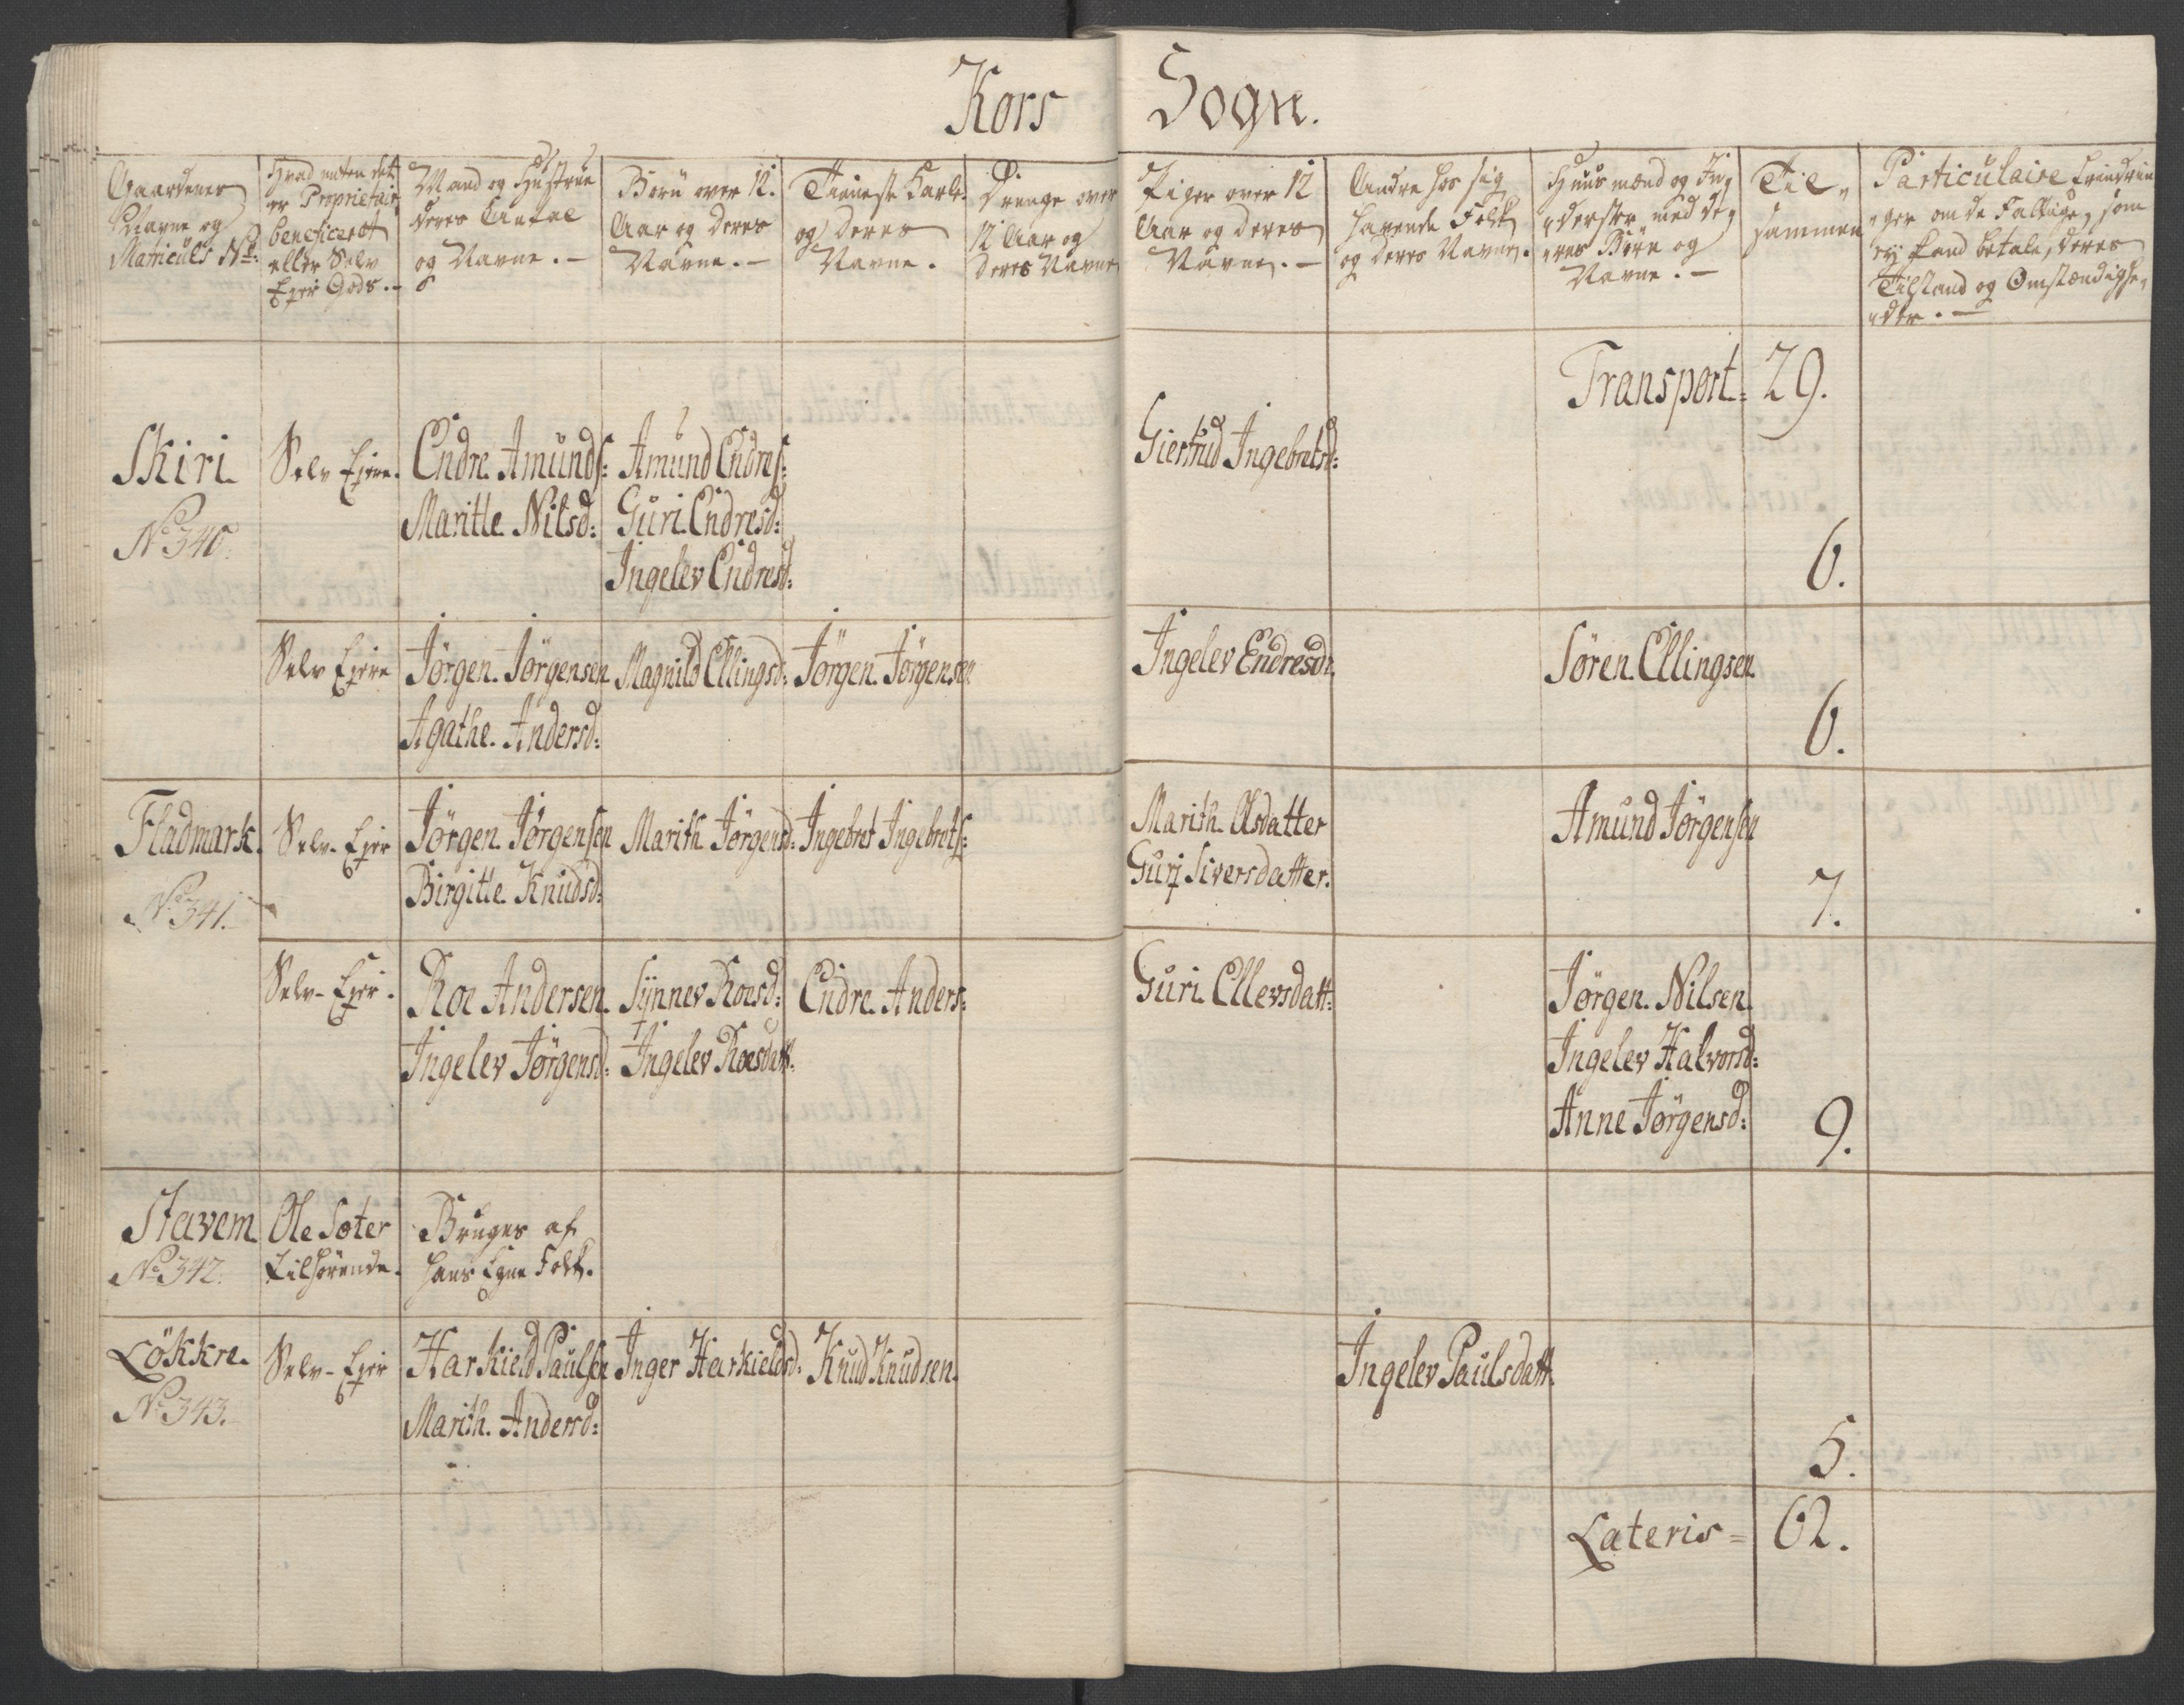 Kors Sogn.
Gaardenes
Navne og
Matriculs No:
Hvad enten det
er Proprietair,
beneficeret
eller Selv
Ejer Gods.-
Mand og Hustrue
deres Antal
og Navne.-
Børn over 12.
Aar og deres
Navne.-
Tieneste Karle
og deres
Navne.
Drenge over
12 Aar og
deres Navne
Piger over 12
Aar og deres
Navne.-
Andre hos sig
havende Folk
og deres Navne.
Huusmænd og In,
derster med de,
res Børn og
Navne.-
Til,
sammen
Particulaire Erindrin
ger om de Fattige, som
ey kand betale, deres
Tilstand og Omstændighe,
der.-
Transport. 29.
Skiri
No 340.
Selv Ejere.
Endre Amunds:
Maritle Nilsd:
Amund Endres:
Guri Endresd:
Ingelev Endresd:
Giertrud Ingebretsd:
6.
Selv Ejere
Jørgen Jørgensen
Agathe Andersd:
Magnild Ellingsd:
Jørgen Jørgensen
Ingelev Endresd:
Søren Ellingsen
6.
Fladmark.
No 341.
Selv-Ejer
Jørgen Jørgensen
Birgitle Knudsd:
Marith Jørgensd:
Ingebret Ingebrets:
Marith Olsdatter
Guri Siversdatter.
Amund Jørgensen
7.
Selv-Ejer.
Roe Andersen
Ingelev Jørgensd:
Synnev Roesd:
Ingelev Roesdatt.
Endre Anders:
Guri Ellevsdatt:
Jørgen Nilsen
Ingelev Halvorsd:
Anne Jørgensd:
9.
Stavem
No 342.
Ole Sæter
tilhørende.
Bruges af
hans Egne Folk.
Løkkre.
No 343.
Selv-Ejer
Harkield Paulsen
Marith Andersd:
Inger Harkieldsd:
Knud Knudsen.
Ingelev Paulsdatt.
5.
Lateris = 62.